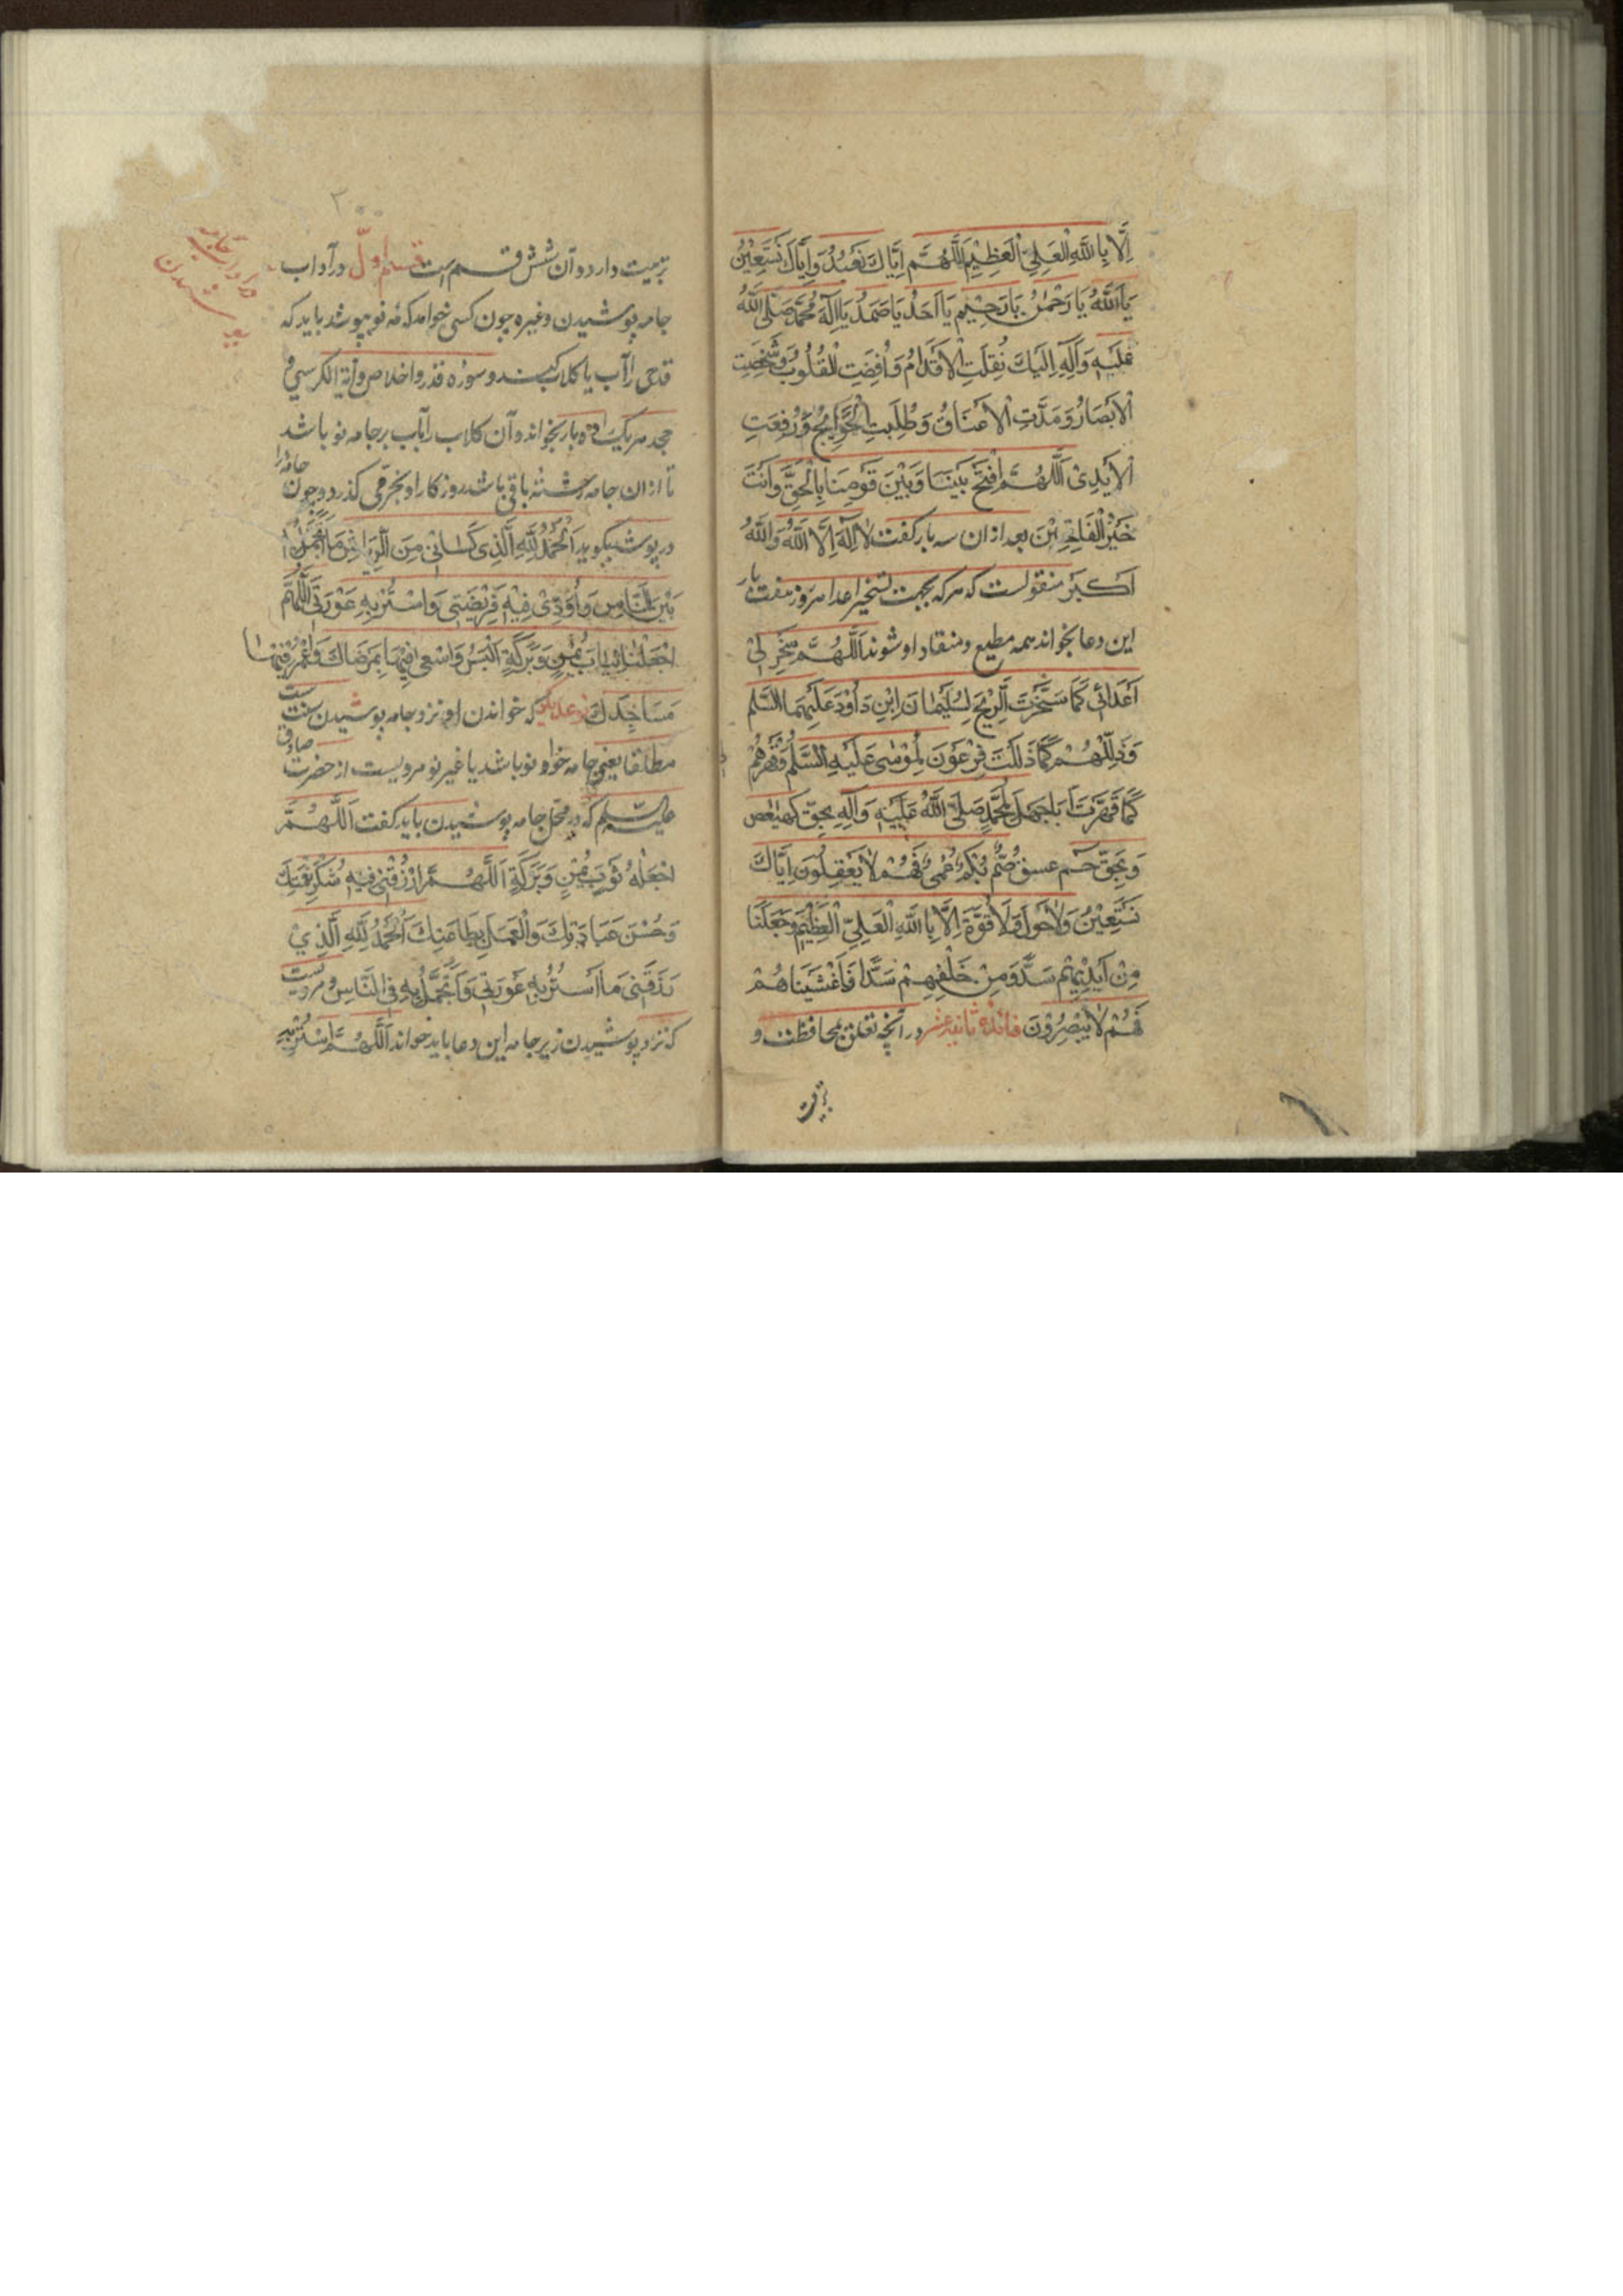 اِلَّا بِاللهِ الْعَلِيِّ الْعَظِيْمِ اَللّٰهُمَّ اِيَّاكَ نَعْبُدُ وَاِيَّاكَ نَسْتَعِيْنُ
يَا اَللهُ يَا رَحْمٰنُ يَا رَحِيْمُ يَا اَحَدُ يَا صَمَدُ يَا اِلٰهَ مُحَمَّدٍ صَلَّى اللهُ
عَلَيْهِ وَآلِهِ اِلَيْكَ نُقِلَتِ الْاَقْدَامُ وَاُفْضَتِ الْقُلُوْبُ وَشَخِصَتِ
الْاَبْصَارُ وَمَدَّتِ الْاَعْنَاقُ وَطُلِبَتِ الْحَوَائِجُ وَرُفِعَتِ
الْاَيْدِيْ اَللّٰهُمَّ افْتَحْ بَيْنَنَا وَبَيْنَ قَوْمِنَا بِالْحَقِّ وَاَنْتَ
خَيْرُ الْفَاتِحِيْنَ بعد ازان سه بار كفت لَا اِلٰهَ اِلَّا اللهُ وَاللهُ
اَكْبَرُ منقولست كه هركه بجهت تسخير اعدا هر روز هفت بار
اين دعا بخواند همه مطيع ومنقاد او شوند اَللّٰهُمَّ سَخِّرْ لِيْ
اَعْدَائِيْ كَمَا سَخَّرْتَ الرِّيْحَ لِسُلَيْمَانَ ابْنِ دَاوُدَ عَلَيْهِمَا السَّلَم
وَذَلِّلْهُمْ كَمَا ذَلَّلْتَ فِرْعَوْنَ لِمُوْسٰى عَلَيْهِ السَّلَمُ وَقَهِّرْهُمْ
كَمَا قَهَّرْتَ اَبَا جَهْلٍ لِمُحَمَّدٍ صَلَّى اللهُ عَلَيْهِ وَآلِهِ بِحَقِّ كهيعص
وَبِحَقِّ حٰم عسق صُمٌّ بُكْمٌ عُمْيٌ فَهُمْ لَا يَعْقِلُوْنَ اِيَّاكَ
نَسْتَعِيْنُ وَلَا حَوْلَ وَلَا قُوَّةَ اِلَّا بِاللهِ الْعَلِيِّ الْعَظِيْمِ وَجَعَلْنَا
مِنْ اَيْدِيْهِمْ سَدًّا وَمِنْ خَلْفِهِمْ سَدًّا فَاَغْشَيْنَاهُمْ
فَهُمْ لَا يُبْصِرُوْنَ فائده ثانيه عشر در آنچه تعلق بمحافظت و
تربيت
٢٠٠
تربيت دارد وآن شش قسم است قسم اوّل در آداب
جامه پوشيدن وغيره چون كسى خواهد كه نو بپوشد بايد كه
قدحى را آب يا كلاب كند وسوره قدر واخلاص وآية الكرسي
هر يك ده بار بخواند وآن كلاب را آب بر جامه نو باشد
تا ازان جامه رشته باقى باشد روزكار او بخرمى كذرد وچون جامه را
در پوشد بگويد اَلْحَمْدُ لِلّٰهِ الَّذِي كَسَانِي مِنَ الرِّيَاشِ مَا اَتَجَمَّلُ
بَيْنَ النَّاسِ وَاُؤَدِّيْ فِيْهِ فَرِيْضَتِي وَاَسْتُرُ بِهِ عَوْرَتِي اَللّٰهُمَّ
اجْعَلْهَا ثِيَابَ يُمْنٍ وَبَرَكَةٍ اَلْبَسُ وَاَسْعٰى فِيْهَا بِمَرْضَاتِكَ وَاَعْمُرُ فِيْهَا
مَسَاجِدَكَ كه خواندن او نزد جامه پوشيدن سنت است
مطلقا يعنى جامه خواه نو باشد يا غير نو مرويست از حضرت صادق
عليه السلم كه در محل جامه پوشيدن بايد كفت اَللّٰهُمَّ
اجْعَلْهُ ثَوْبَ يُمْنٍ وَبَرَكَةٍ اَللّٰهُمَّ ارْزُقْنِي فِيْهِ شُكْرَ نِعْمَتِكَ
وَحُسْنَ عِبَادَتِكَ وَالْعَمَلَ بِطَاعَتِكَ اَلْحَمْدُ لِلّٰهِ الَّذِيْ
رَزَقَنِي مَا اَسْتُرُ بِهِ عَوْرَتِي وَاَتَجَمَّلُ بِهِ فِي النَّاسِ ومرويست
كه نزد پوشيدن زير جامه اين دعا بايد خواند اَللّٰهُمَّ اسْتُرْ